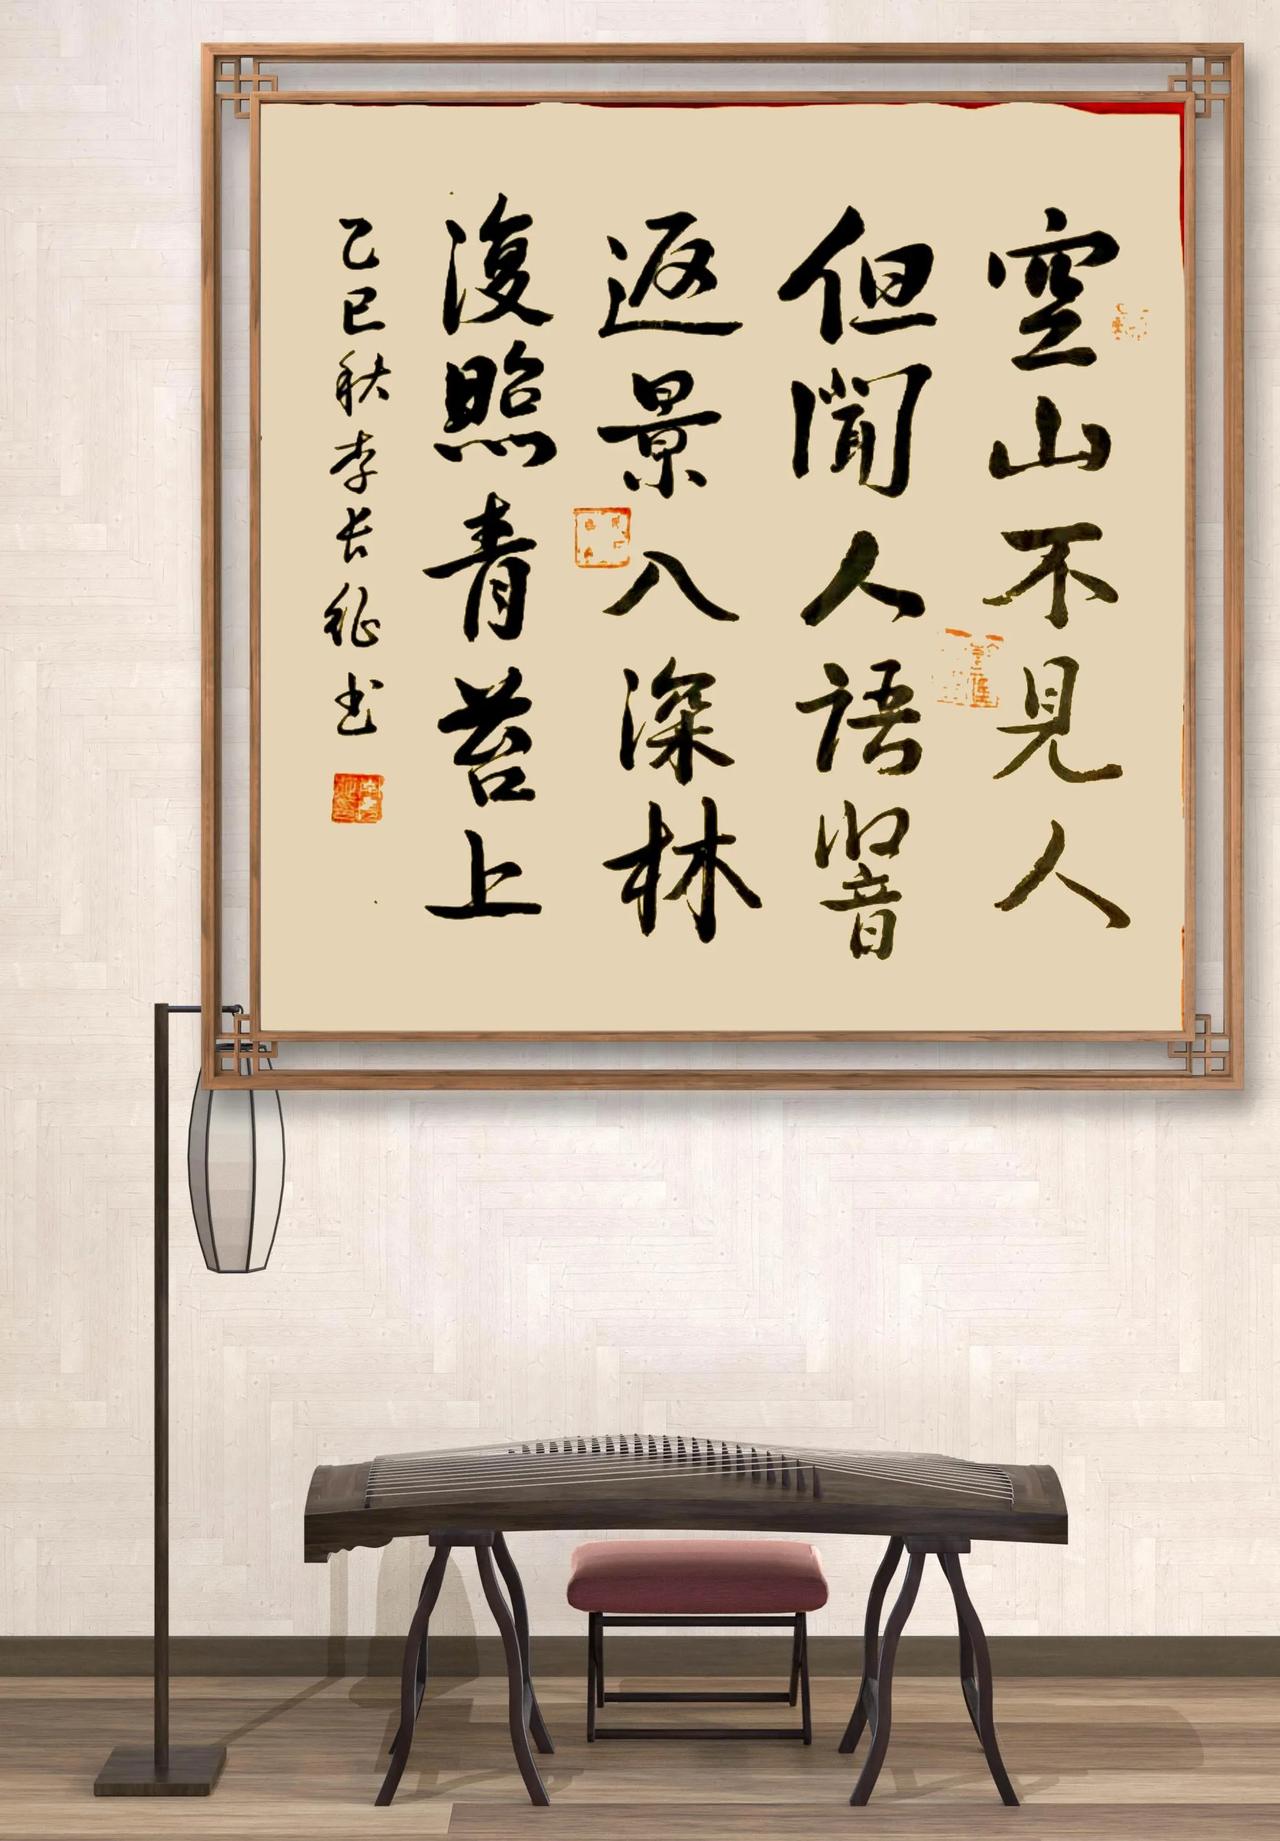 空山不見人
但聞人語響
返景入深林
復照青苔上
乙巳秋李长征书